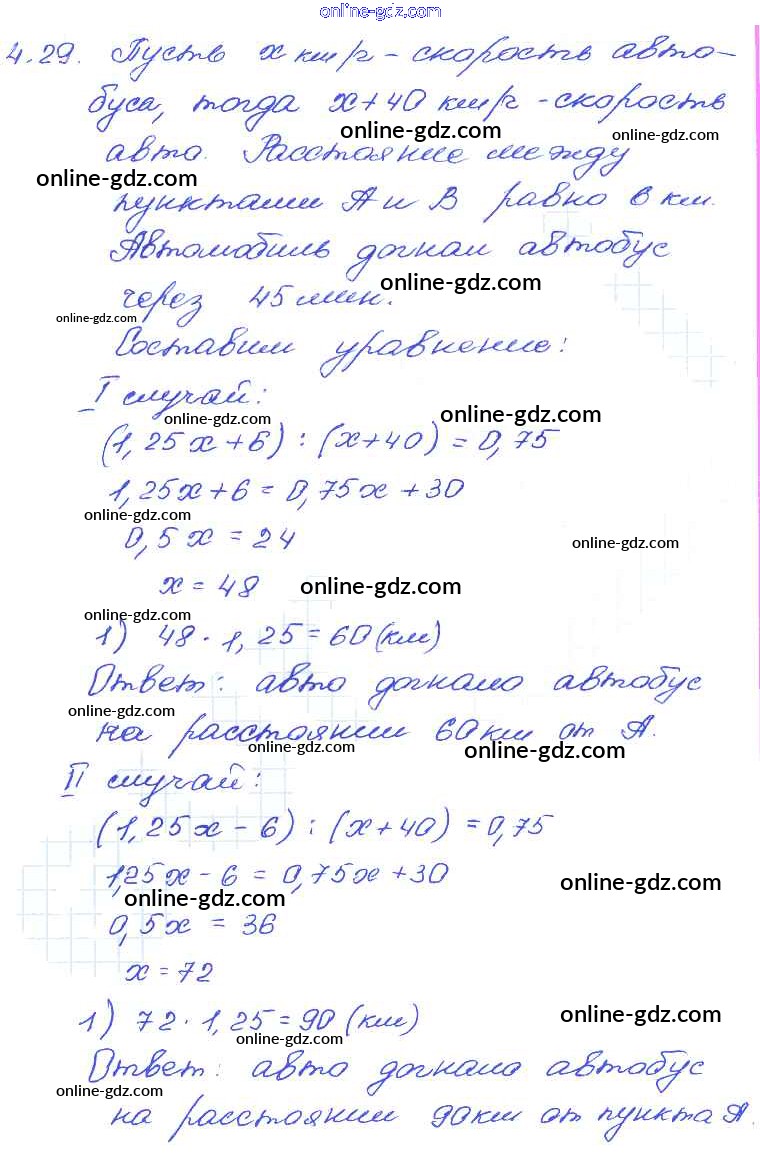 online-gdz.com
4.29. Пусть x км/ч - скорость авто-
буса, тогда x+40 км/ч - скорость
online-gdz.com online-gdz.com
авто. Расстояние между
online-gdz.com
пунктами A и B равно 6 км.
Автомобиль догнал автобус
online-gdz.com
через 45 мин.
online-gdz.com
Составим уравнение:
I случай:
online-gdz.com online-gdz.com
(1,25x+6) : (x+40) = 0,75
1,25x+6 = 0,75x+30
online-gdz.com
0,5x = 24
online-gdz.com
x = 48
online-gdz.com
online-gdz.com
1) 48 · 1,25 = 60 (км)
Ответ: авто догнало автобус
online-gdz.com
на расстоянии 60 км от A.
online-gdz.com online-gdz.com
II случай:
(1,25x - 6) : (x+40) = 0,75
1,25x - 6 = 0,75x + 30
online-gdz.com
online-gdz.com
0,5x = 36
x = 72
1) 72 · 1,25 = 90 (км)
online-gdz.com
online-gdz.com
Ответ: авто догнало автобус
online-gdz.com
на расстоянии 90 км от пункта A.